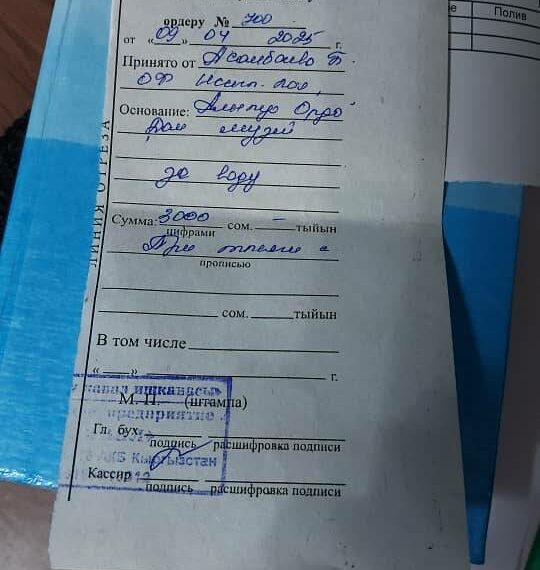 Полив
ордеру № 700
от «09» 04 2025 г.
Принято от Асанбаева Б.
ОФ
Основание: Алтын Ордо
Дом музей
за воду
Сумма: 3000 сом. – тыйын
цифрами
При тысячи с
прописью
сом. тыйын
В том числе
« » г.
М. П. (штампа)
предприятие
Гл. бух.
подпись расшифровка подписи
АКБ Кыргызстан
Кассир
подпись расшифровка подписи
ЛИНИЯ ОТРЕЗА